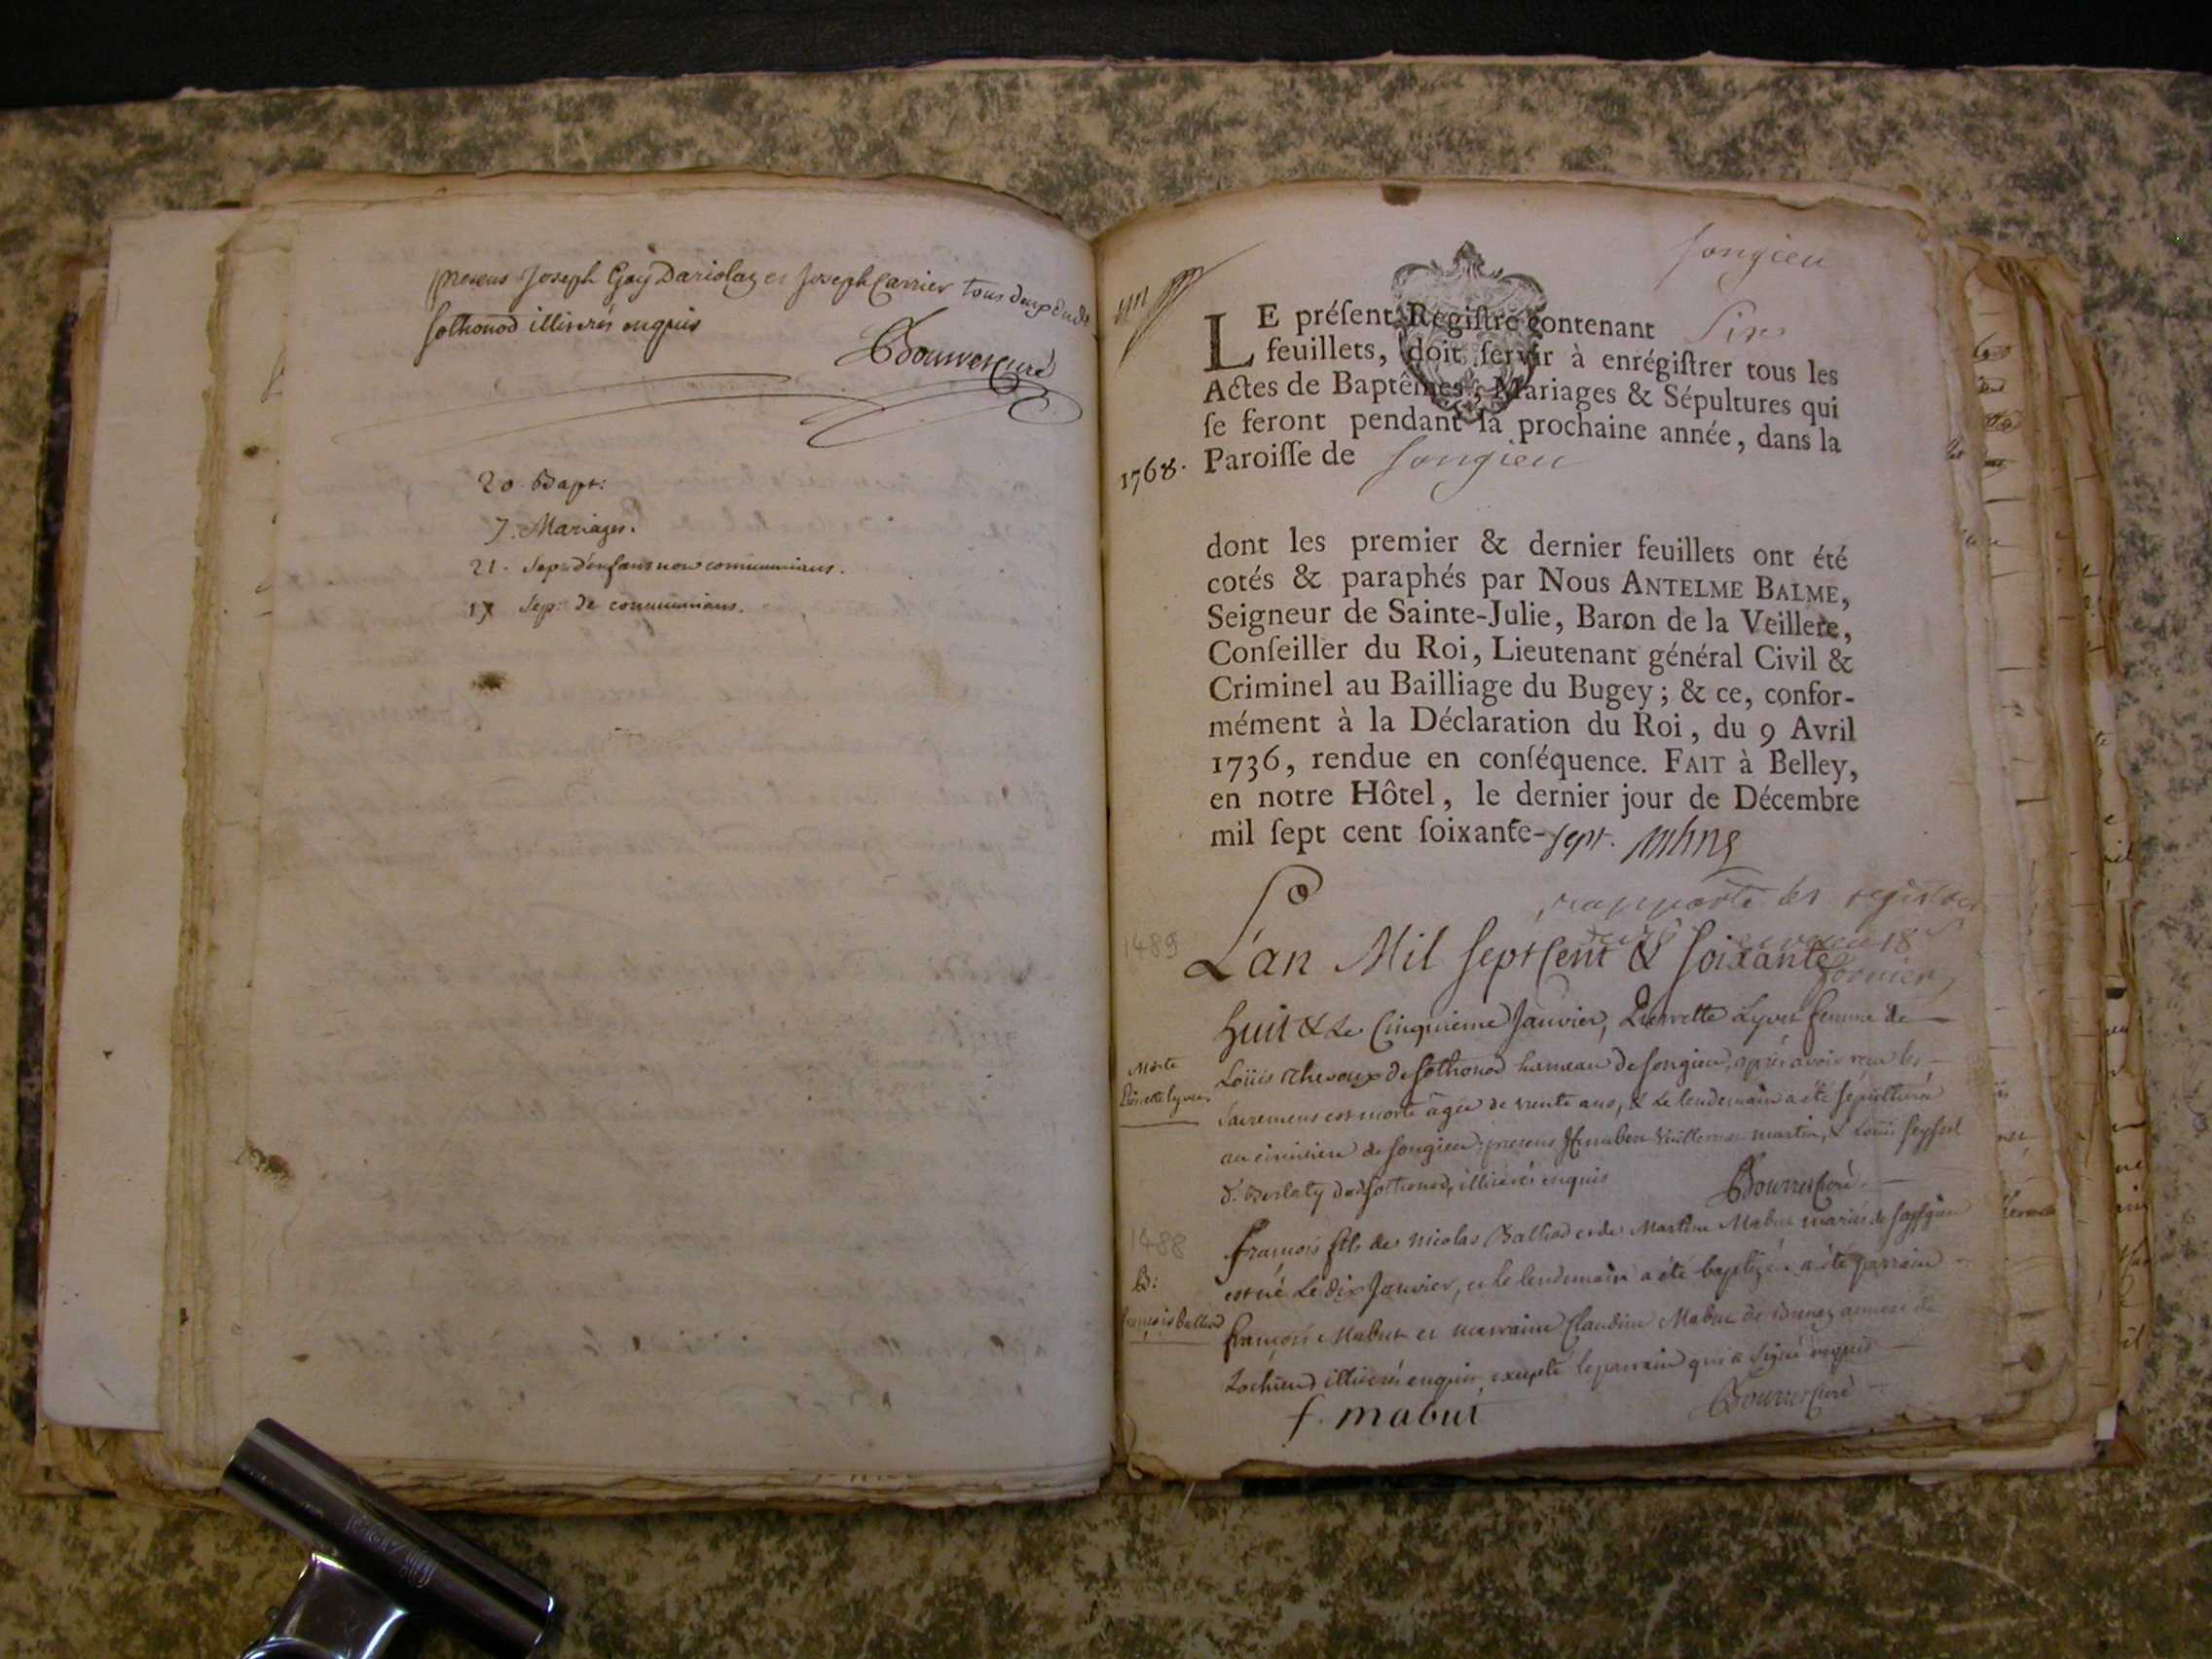 presens Joseph Goÿ Dariolaz et Joseph Carrier tous deux du dt
sothonod illiterés enquis
Bouvercuré
20. Bapt:
7. Mariages.
21. Sep: d'enfans non communians.
17 Sep: de communians.
songieu
LE préſent Regiſtre contenant Six
feuillets, doit ſervir à enrégiſtrer tous les
Actes de Baptêmes, Mariages & Sépultures qui
ſe feront pendant la prochaine année, dans la
1768. Paroiſſe de songieu
dont les premier & dernier feuillets ont été
cotés & paraphés par Nous ANTELME BALME,
Seigneur de Sainte-Julie, Baron de la Veillere,
Conſeiller du Roi, Lieutenant général Civil &
Criminel au Bailliage du Bugey; & ce, confor-
mément à la Déclaration du Roi, du 9 Avril
1736, rendue en conſéquence. FAIT à Belley,
en notre Hôtel, le dernier jour de Décembre
mil ſept cent ſoixante-sept.
rapporté les registres
18
1489
L'an Mil sept Cent & soixante
huit & Le Cinquieme Janvier, Pierrette Lyvet femme de
Morte
Loüis Chesoux de Sothonod hameau de songieu, après avoir reçu les
Sacremens est morte agée de trente ans, & Le lendemain a été sépulturée
au cimitiere de songieu, presens Humbert Vuillerme martin, & Loüis seyssel
d. Berlaty de sothonod, illiterés enquis
1488
françois fils de Nicolas Balliod et de Martine Mabut mariés de
B:
est né Le dix Janvier, et le lendemain a été baptizé, a été parrain
françois Balliod
françois Mabut et marraine Claudine Mabut de annexe de
Lochieu illiterés enquis, excepté le parrain qui a signé requis
f. mabut